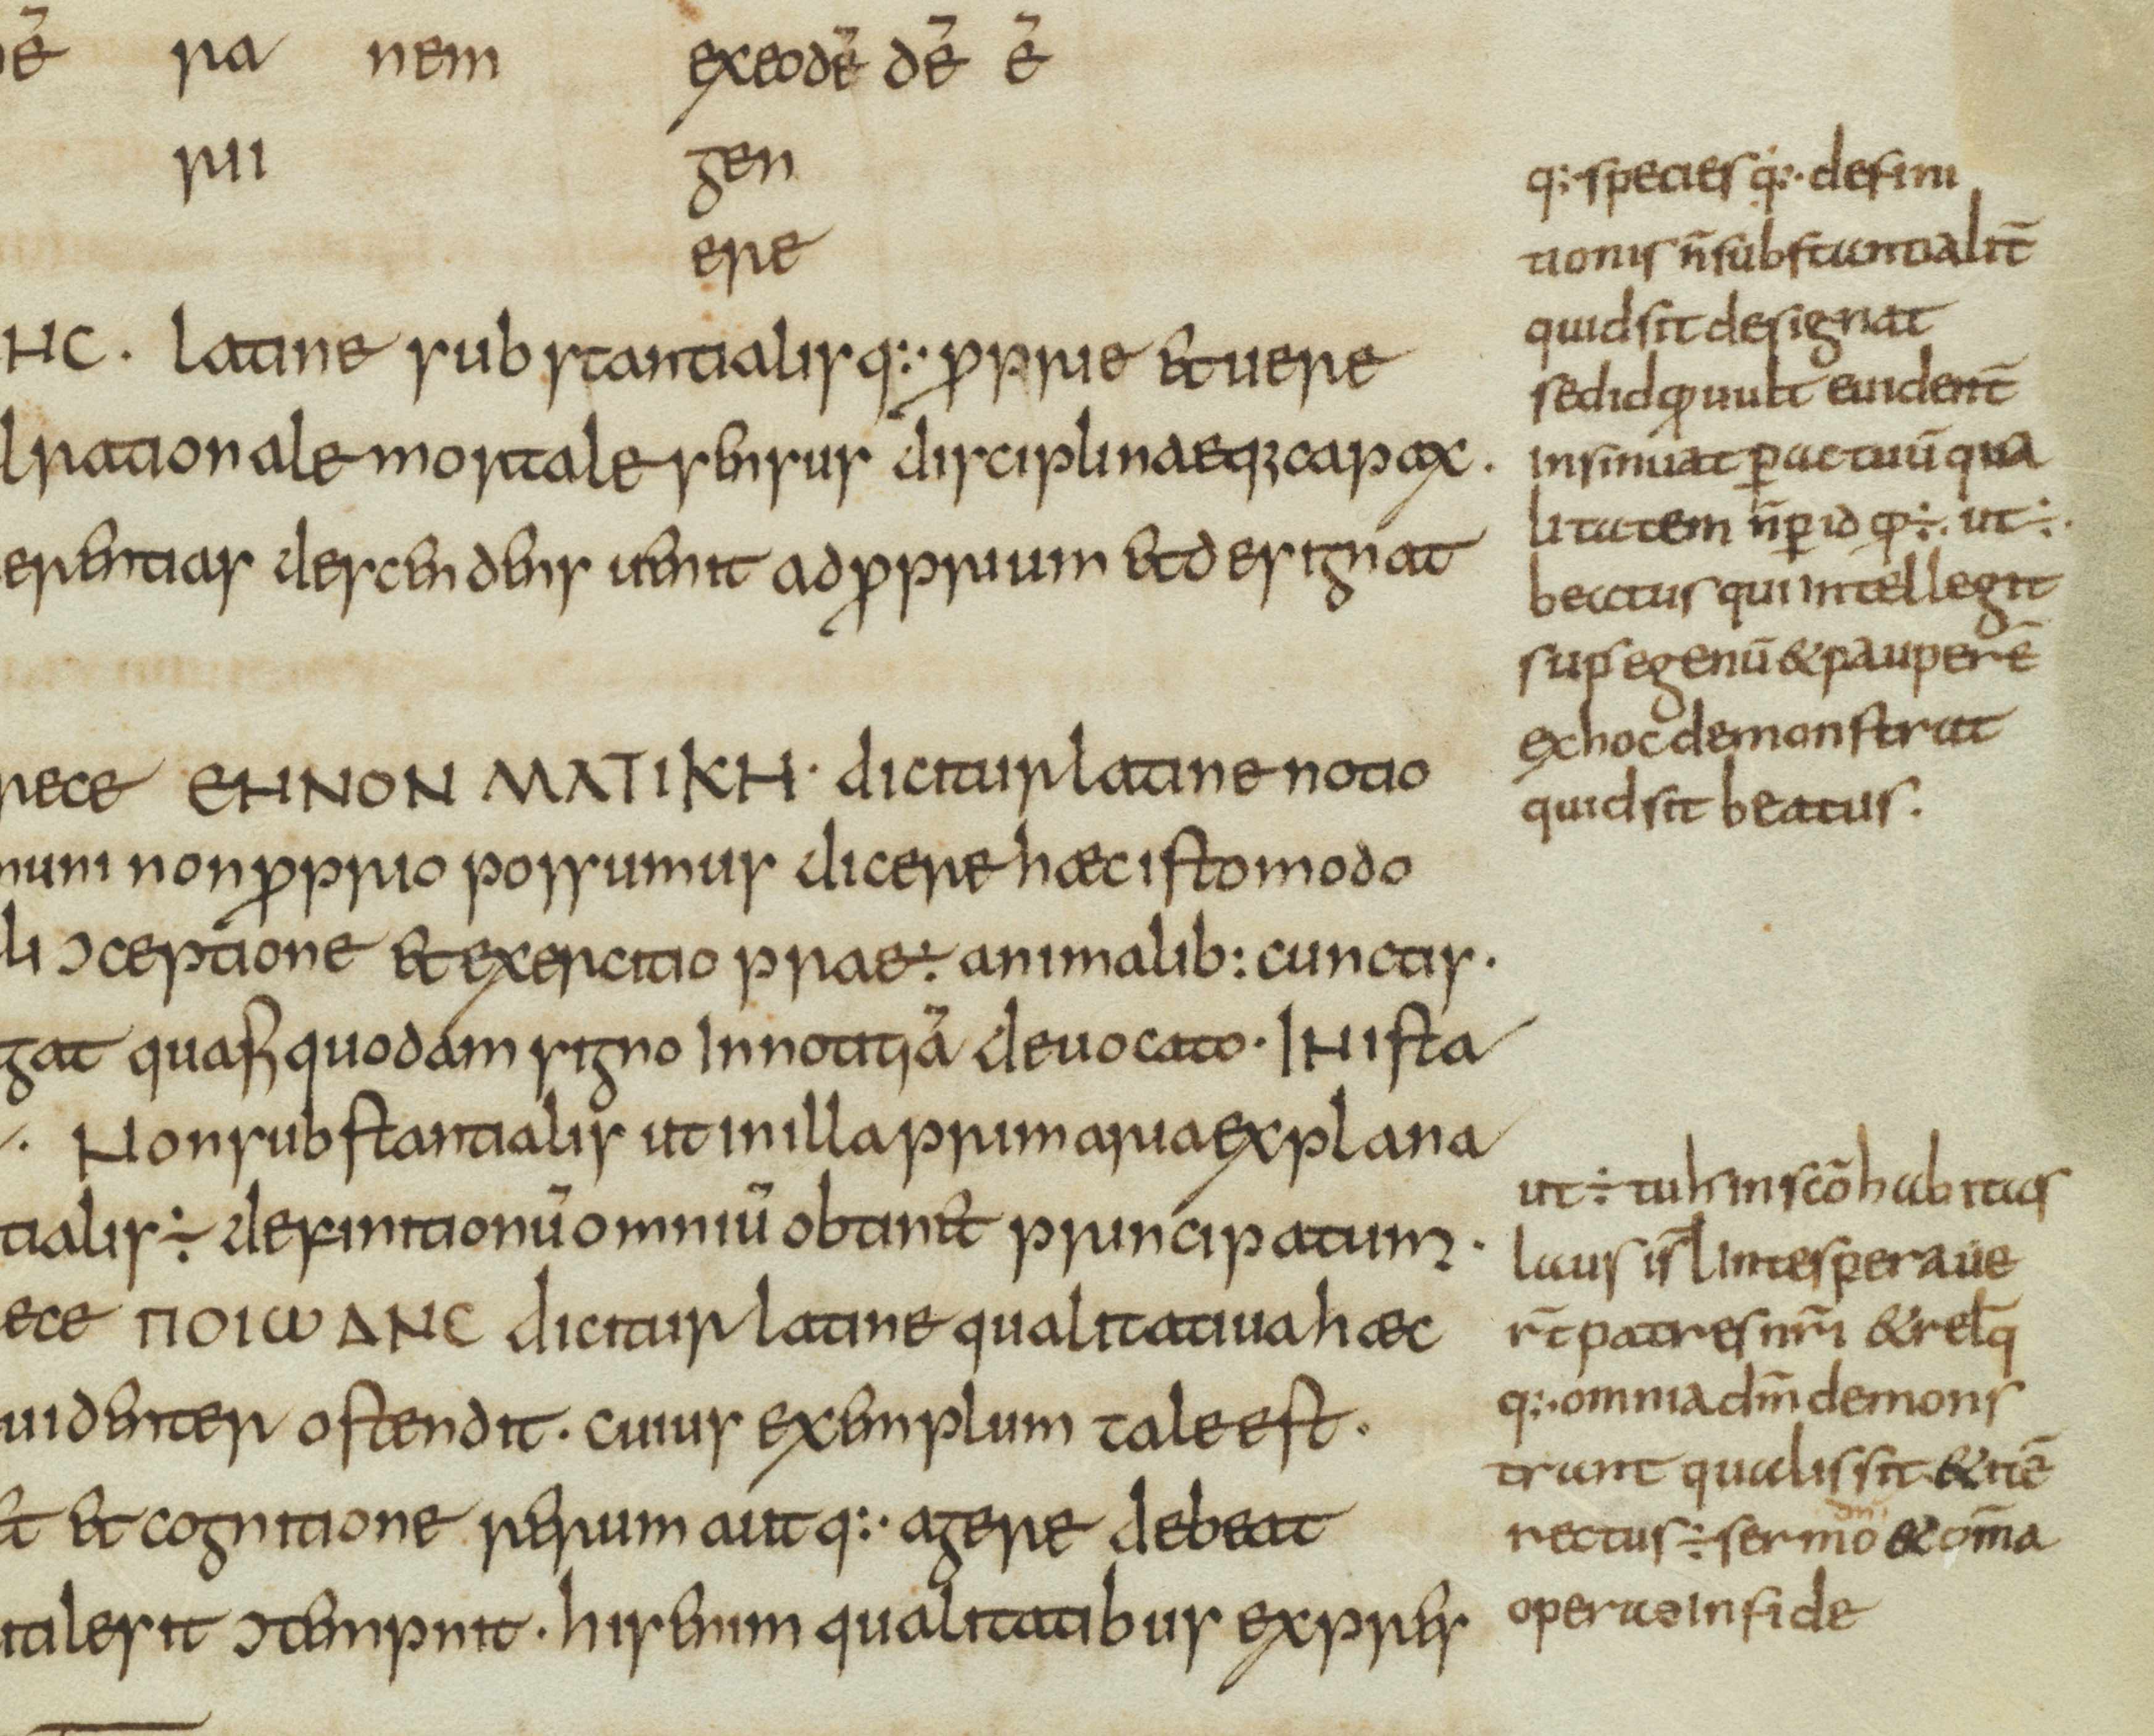 ē ra nem exeodē dē ē
rii gen
ere
HC. latine substantialis q:· proprie et uere
l rationale mortale sensus disciplinaeq; capax.
erentias descendens uenit ad proprium et designat
rece ЄHNON MATIKH· dicitur latine notio
muni non proprio possumus dicere haec isto modo
li ɔceptione et exercitio prae÷ animalib: cunctis.
gat quodam signo In notitiā deuocato· IN ista
. Non substantialis ut in illa primaria explana
tialis ÷ definitionū omniū obtinet principatum.
ece ΠΟΙω ΔΝC dicitur latine qualitatiua haec
uidenter ostendit. cuius exemplum tale est.
et cognitione rerum aut q:· agere debeat
tale sit ɔtempnit. his enim qualitatibus expres
q:· species q:· defini
tionis n̄ substantialit̄
quid sit designat
sed id quult euident̄
insinuat p actuū qua
litatem n̄ p id q ÷. ut ÷.
beatus qui intellegit
sup egenū & pauperē
ex hoc demonstrat
quid sit beatus.
ut ÷ tu h in scō habitas
laus isl̄ In te speraue
rt̄ patres nr̄i & relq̄
q:· omnia dm̄ demons
trant qualis sit & uē
rectus ÷ sermo & om̄a
opera In fide